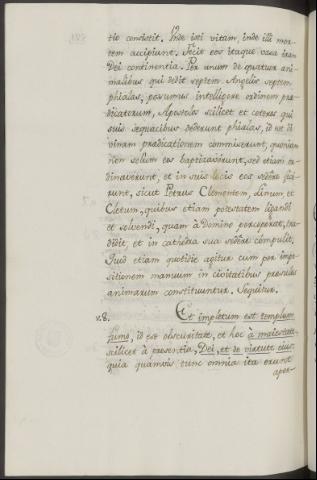 tio consistit. Inde isti vitam, inde illi mor-
tem accipiunt. Fecit eos itaque vasa irae
Dei continentia. Per unum de quatuor ani-
malibus qui dedit septem Angelis septem
phialas, possumus intelligere ordinem prae-
dicatorum, Apostolos scilicet et ceteros qui
suis sequacibus dederunt phialas, id est di-
vinam praedicationem commiserunt, quoniam
non solum eos baptizaverunt, sed etiam or-
dinaverunt, et in suis locis eos sedere fece-
runt, sicut Petrus Clementem, Linum, et
Cletum, quibus etiam potestatem ligandi
et solvendi, quam à Domino perceperat, tra-
didit, et in cathedra sua sedere compulit.
Quid etiam quotidie agitur cum per impo-
sitionem manuum in civitatibus praesules
animarum constituuntur. Sequitur.
v. 8. Et impletum est templum
fumo, id est obscuritate, et hoc à maiestate
scilicet à praesentia, Dei, et de virtute eius,
quia quamvis tunc omnia ita erunt
aper-